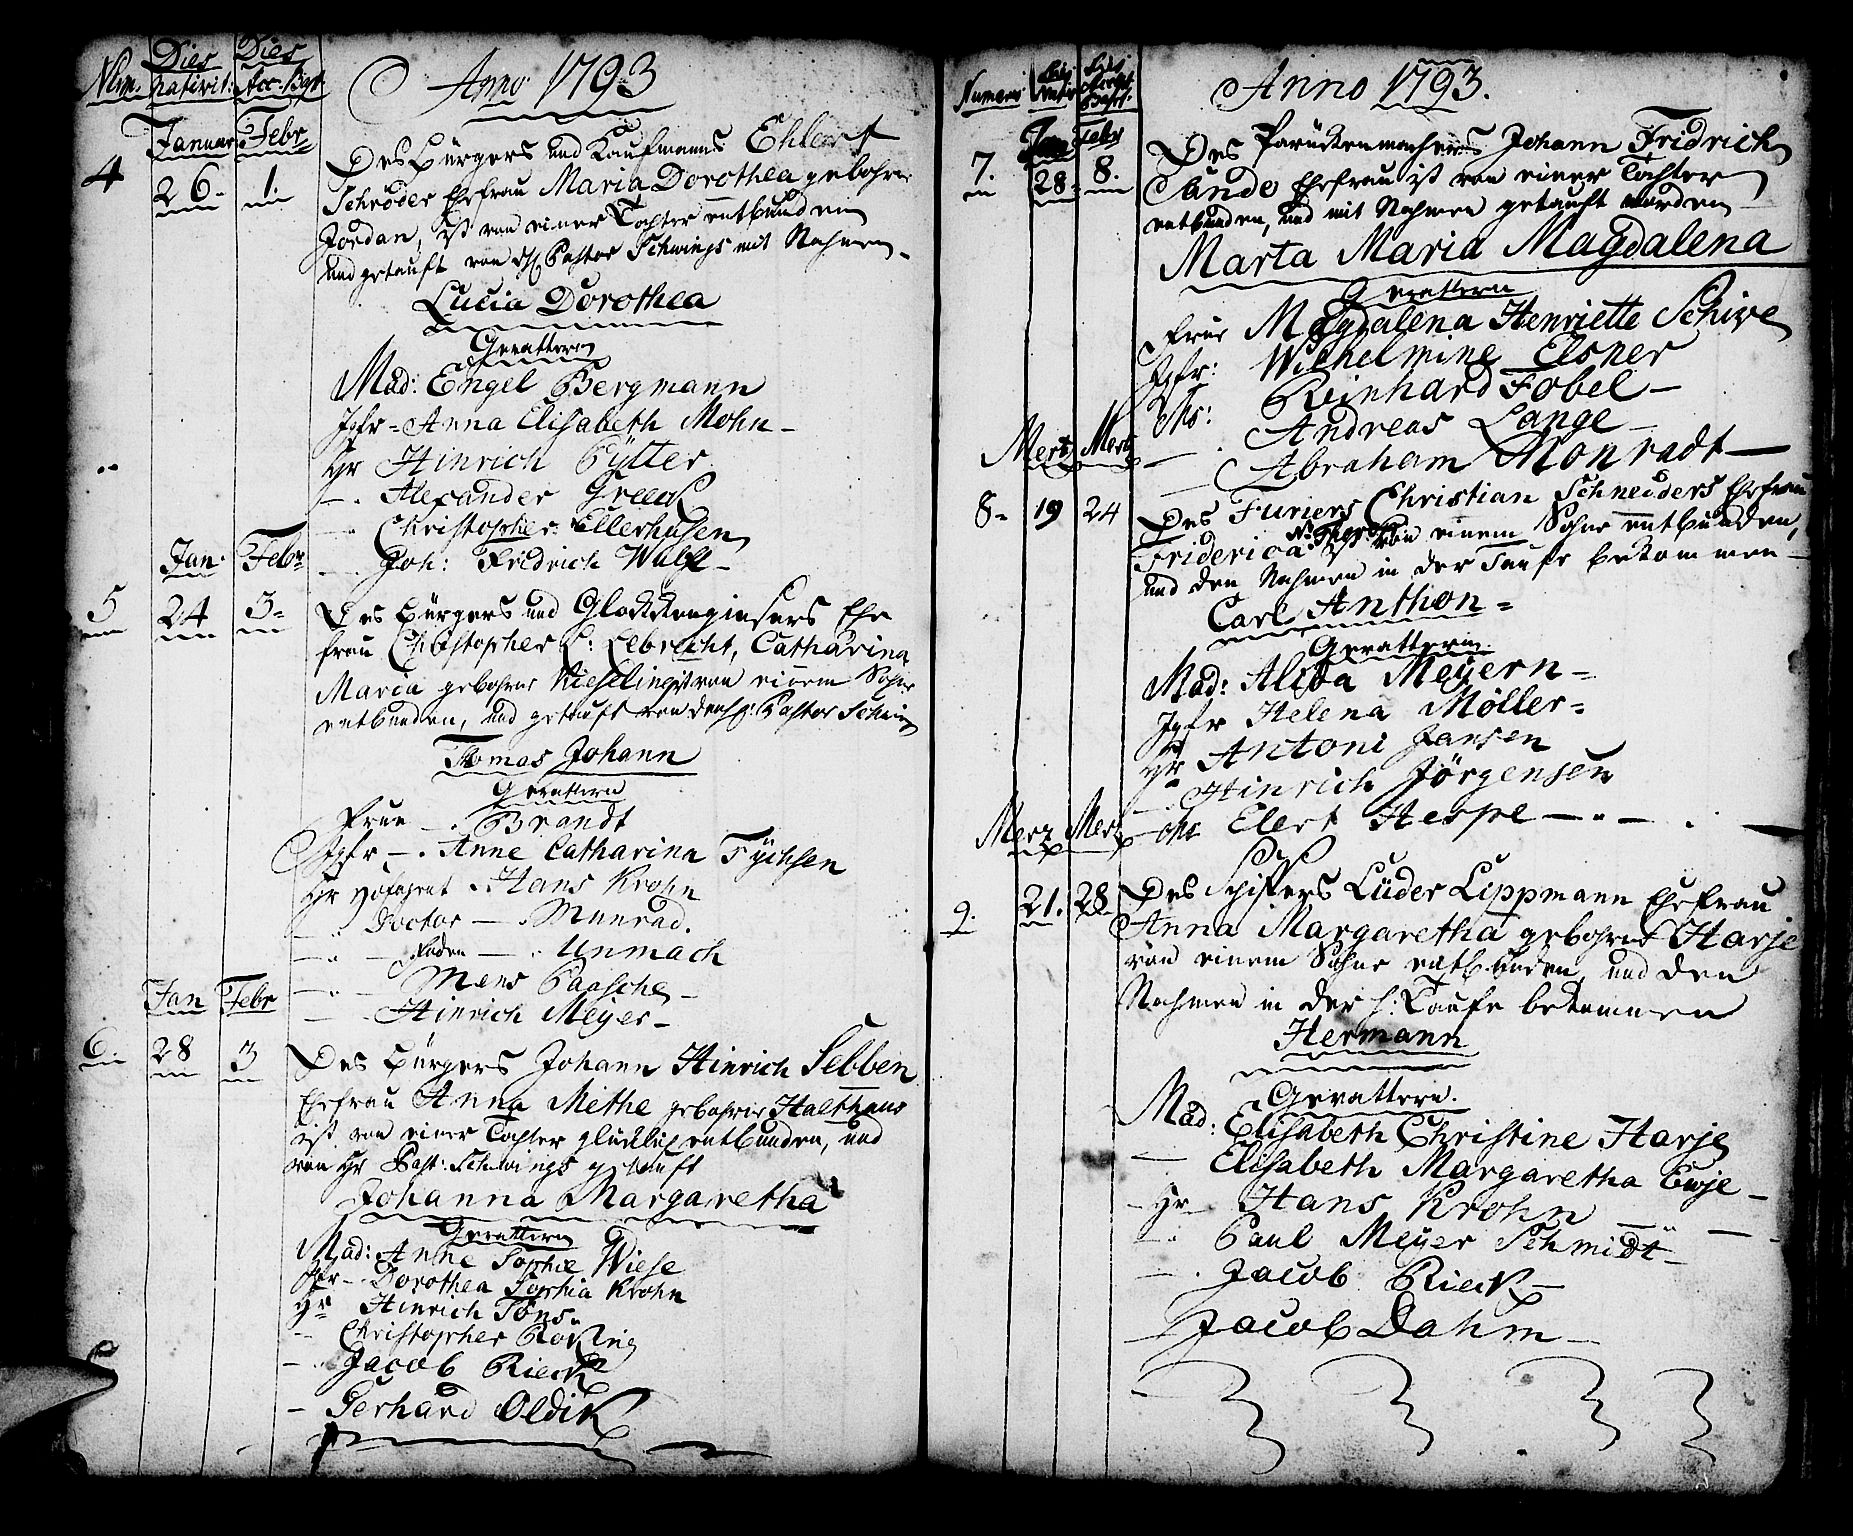 Num. Dies nativit: Dies Acc. Bapt.
Anno 1793
Januar Febr
4 26. 1.
Des Bürgers und Kaufmanns Ehlert
Schröder Ehefrau Maria Dorothea gebohrne
Jordan, ist von einer Tochter entbunden
und getauft von Pastor Schwings mit Nahmen
Lucia Dorothea
Gevattern
Mad: Engel Bergmann
Jgfr Anna Elisabeth Mohn
Hr Hinrich Pütter
Alexander Greeck
Christopher Ellerhusen
Joh: Fridrich Wulff
Jan. Febr
5 24 3
Des Bürgers und Glockkengiesers Ehe
frau Christopher L: Lebrecht, Catharina
Maria gebohrne Kieseling ist von einem Sohne
entbunden, und getauft von dem H: Pastor Schwings
Thomas Johann
Gevattern
Frau Brandt
Jgfr Anne Catharina Tÿchsen
Hr Hofagent Hans Krohn
Doctor Munrad.
Unmach
Mens Paasche
Hinrich Meÿer
Jan Febr
6. 28 3
Des Bürgers Johann Hinrich Sebben
Ehefrau Anna Methe gebohrne Halthaus
ist von einer Tochter glücklich entbunden, und
von Hr Past: Schwings getauft
Johanna Margaretha
Gevattern
Mad: Anne Sophie Wiese
Jgfr Dorothea Sophia Krohn
Hr Hinrich Töns
Christopher Roking
Jacob Rieck
Gerhard Oldik
Numero
Anno 1793.
Jan Febr
7. 28 8.
Des Parückenmachers Johann Fridrich
Sande Ehefrau ist von einer Tochter
entbunden, und mit Nahmen getauft worden
Marta Maria Magdalena
Gevattern
Frau Magdalena Henriette Schive
Jgfr: Wilhelmine Elsner
Reinhard Fobel
Andreas Lange
Abraham Monradt
Mertz Mertz
8 19 24
Des Furiers Christian Schneiders Ehefrau
Friderica ist von einem Sohne entbunden,
und den Nahmen in der Taufe bekommen
Carl Anthon
Gevattern
Mad: Alida Meÿern
Jgfr Helena Möller
Hr Antoni Jansen
Hinrich Jörgensen
Elert Hespe
Merz Merz
9. 21. 28
Des Schiffers Lüder Lippmann Ehefrau
Anna Margaretha gebohrne Harje
von einem Sohne entbunden und den
Nahmen in der H: Taufe bekommen
Hermann
Gevattern.
Mad: Elisabeth Christine Harje
Elisabeth Margaretha Ewje
Hr Hans Krohn
Paul Meÿer Schmidt
Jacob Rieck
Jacob Dahm